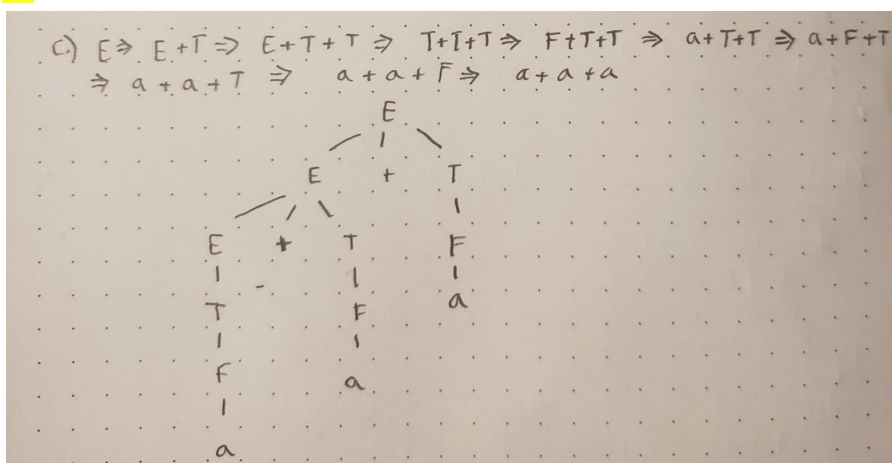 C) E ⇒ E+T ⇒ E+T+T ⇒ T+T+T ⇒ F+T+T ⇒ a+T+T ⇒ a+F+T
⇒ a+a+T ⇒ a+a+F ⇒ a+a+a
E
E + T
E + T F
T F a
F a
a